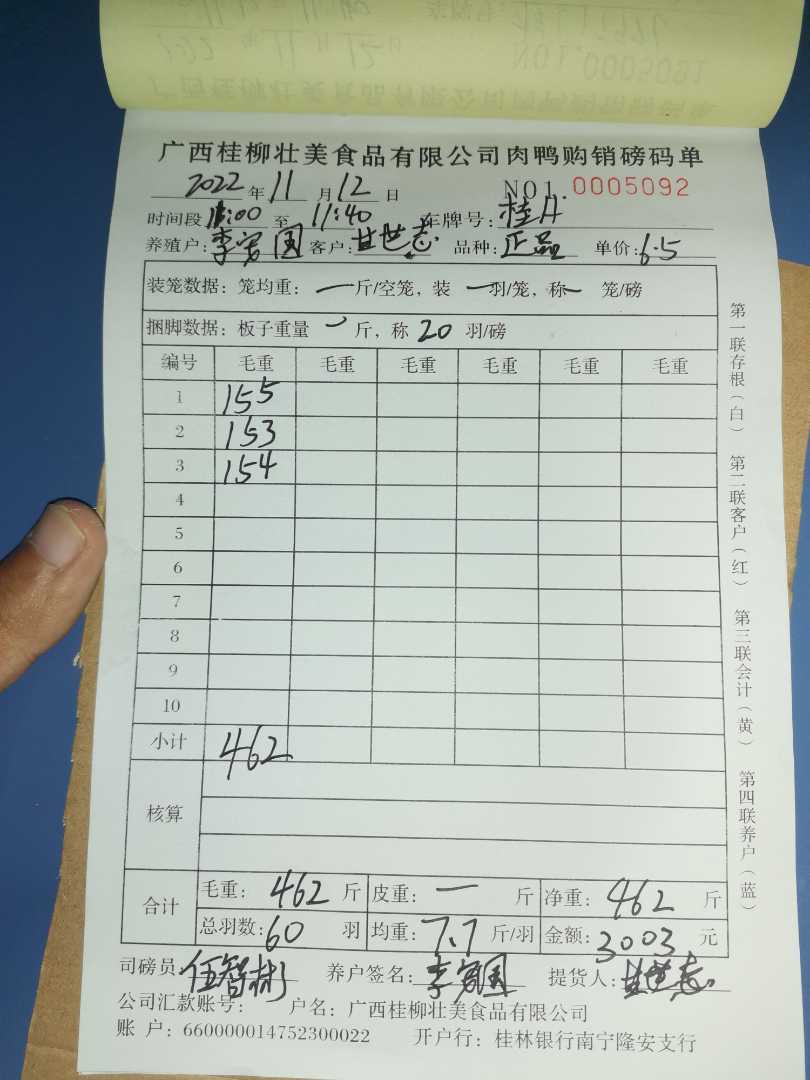 NO1.0005091
广西桂柳壮美食品有限公司肉鸭购销磅码单
2022年11月12日 NO1.0005092
时间段11:00至11:40 车牌号:桂A
养殖户: 客户:甘世志 品种:正品 单价:6.5
装笼数据:笼均重:一斤/空笼,装一羽/笼,称一笼/磅
捆脚数据:板子重量一斤,称20羽/磅
编号 毛重 毛重 毛重 毛重 毛重 毛重
1 155
2 153
3 154
4
5
6
7
8
9
10
小计 462
核算
合计 毛重:462斤 皮重:一斤 净重:462斤
总羽数:60羽 均重:7.7斤/羽 金额:3003元
司磅员:伍智彬 养户签名: 提货人:甘世志
公司汇款账号: 户名:广西桂柳壮美食品有限公司
账 户:660000014752300022 开户行:桂林银行南宁隆安支行
第一联存根(白) 第二联客户(红) 第三联会计(黄) 第四联养户(蓝)